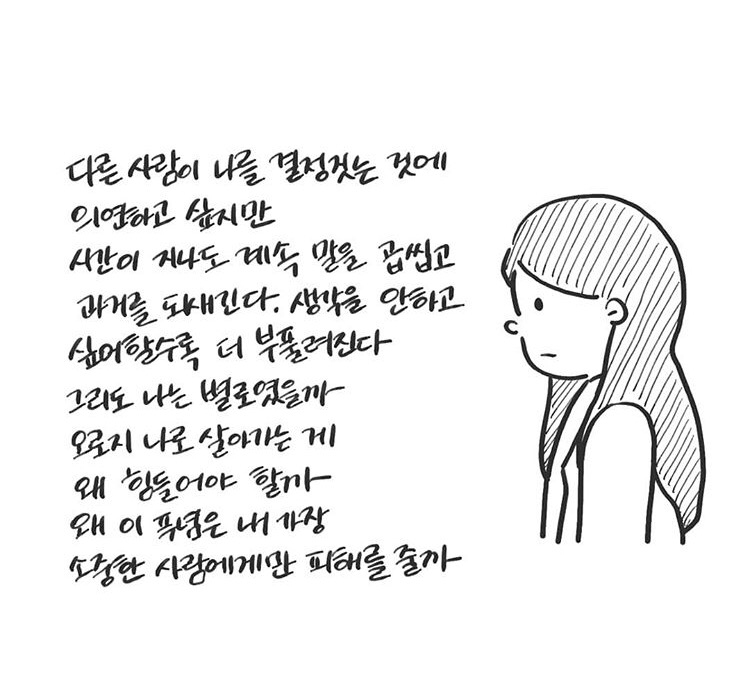 다른 사람이 나를 결정짓는 것에
의연하고 싶지만
시간이 지나도 계속 말을 곱씹고
과거를 되새긴다. 생각을 안하고
싶어할수록 더 부풀려진다
그리도 나는 별로였을까
오로지 나로 살아가는 게
왜 힘들어야 할까
왜 이 푸념은 내 가장
소중한 사람에게만 피해를 줄까